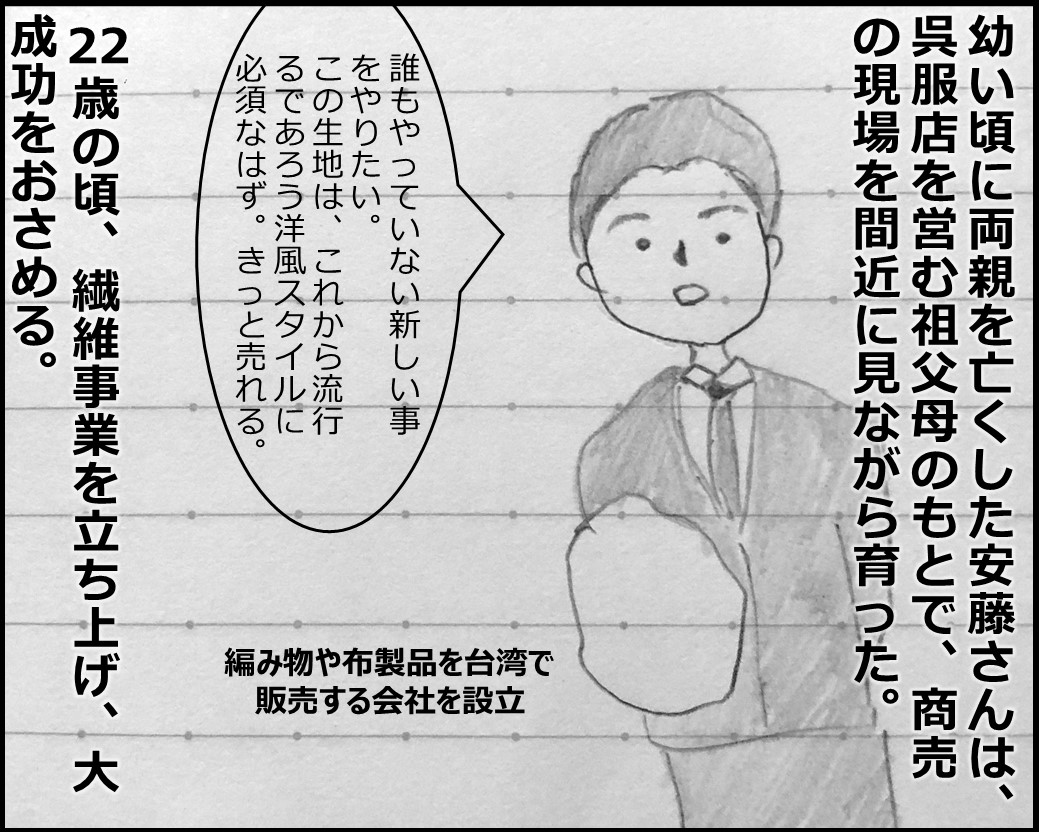 幼い頃に両親を亡くした安藤さんは、
呉服店を営む祖父母のもとで、商売
の現場を間近に見ながら育った。
誰もやっていない新しい事
をやりたい。
この生地は、これから流行
るであろう洋風スタイルに
必須なはず。きっと売れる。
編み物や布製品を台湾で
販売する会社を設立
22歳の頃、繊維事業を立ち上げ、大
成功をおさめる。